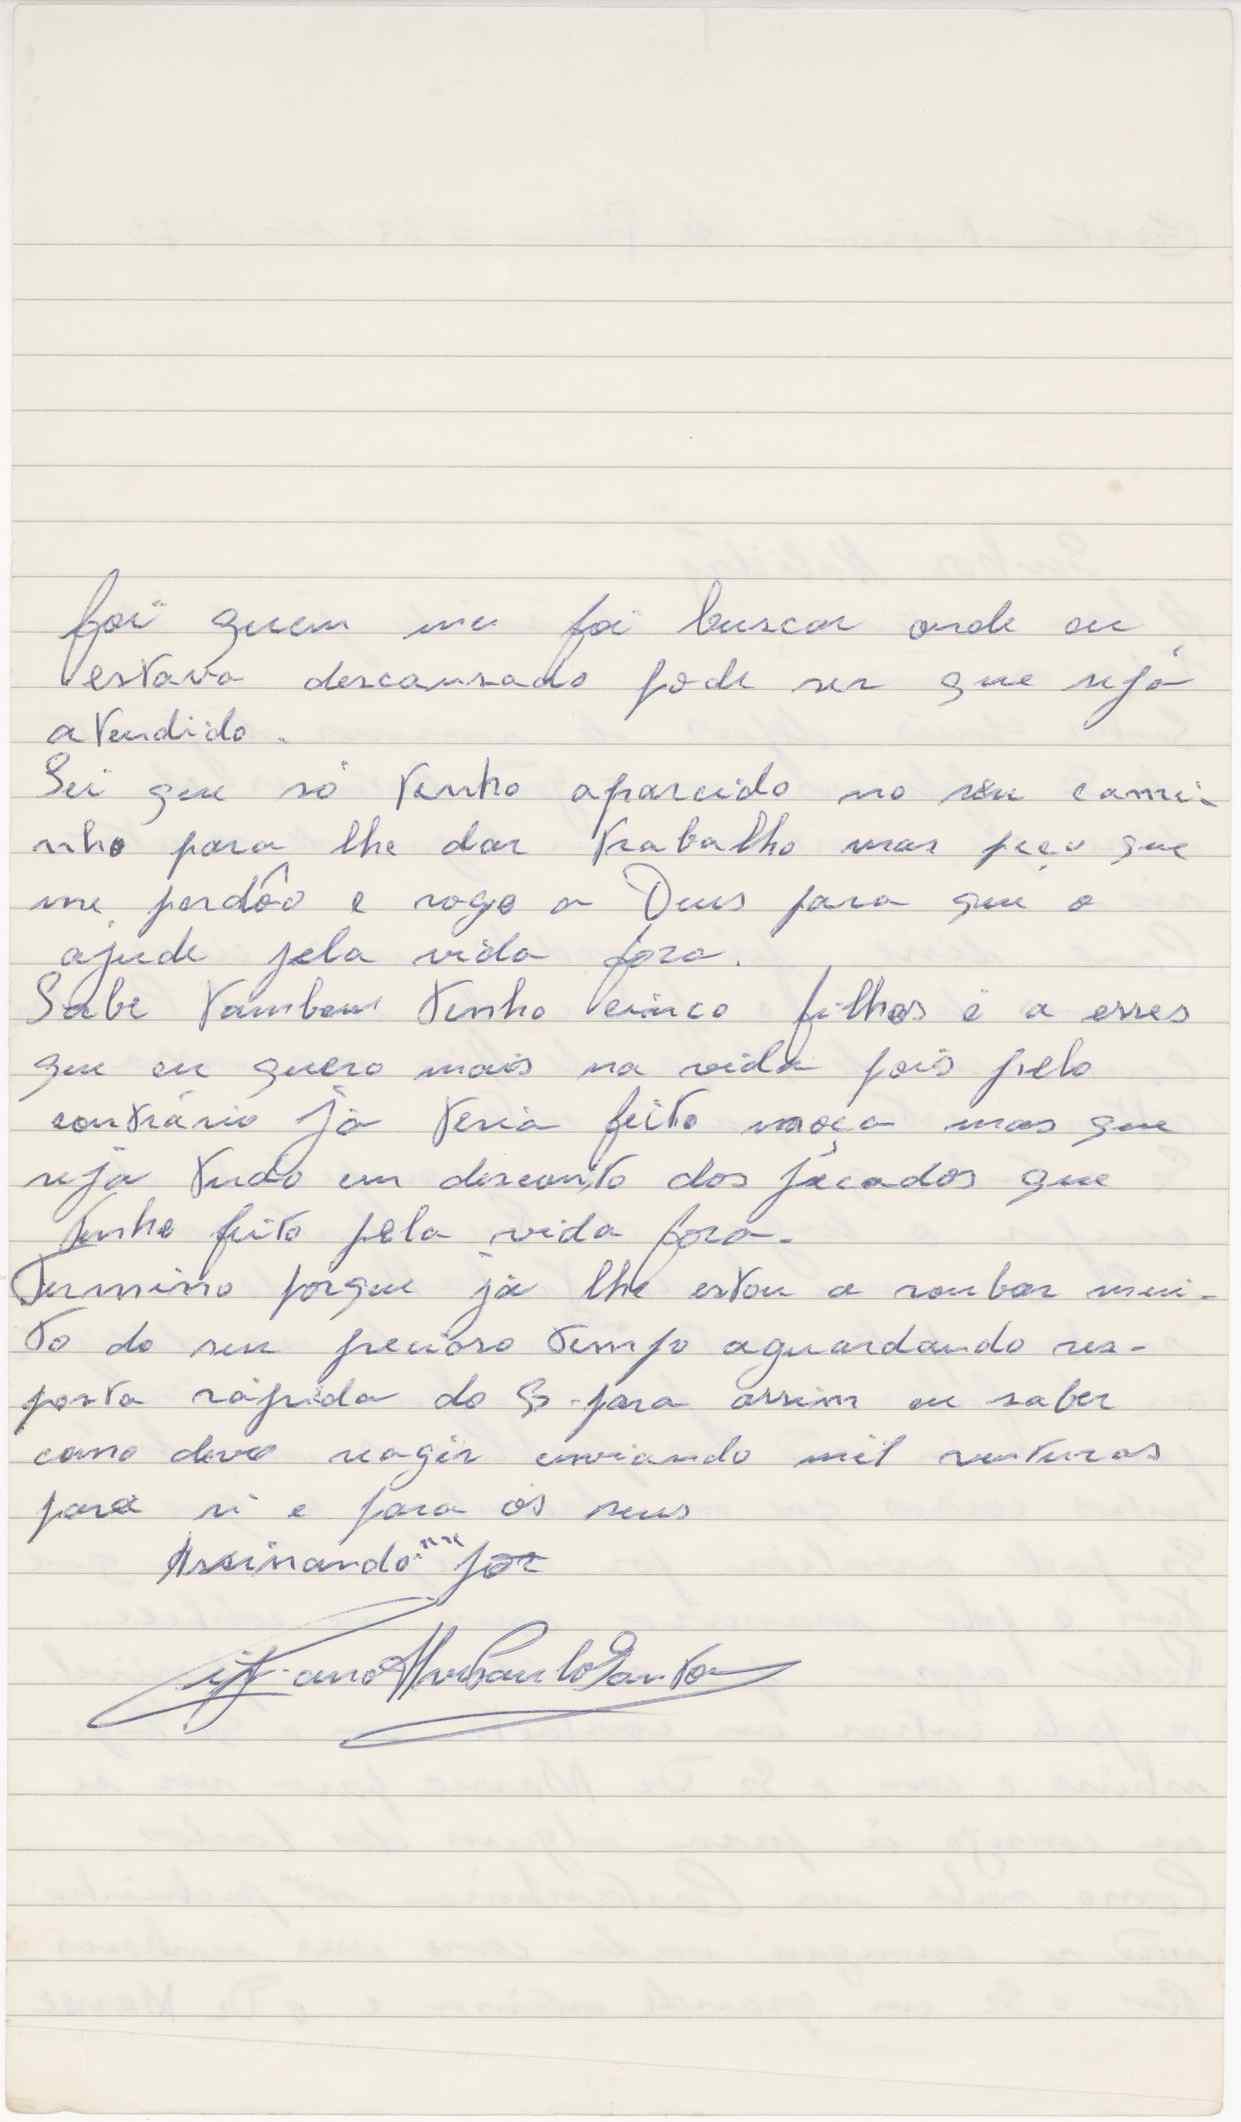 foi quem me foi buscar onde eu
estava descansado pode ser que sejá
atendido.
Sei que só tenho aparcido no seu cami-
nho para lhe dar trabalho mas peço que
me perdôo e rogo a Deus para que o
ajude pela vida fora.
Sabe tambem tenho cinco filhos é a esses
que eu quero mais na vida pois pelo
contrário já teria feito mas que
sejá tudo em desconto dos pecados que
tenho feito pela vida fora.
Termino porque já lhe estou a roubar mui-
to do seu precioso tempo aguardando res-
posta rápida do Sr. para assim eu saber
como devo reagir enviando mil venturas
para si e para os seus
Assinando-me por